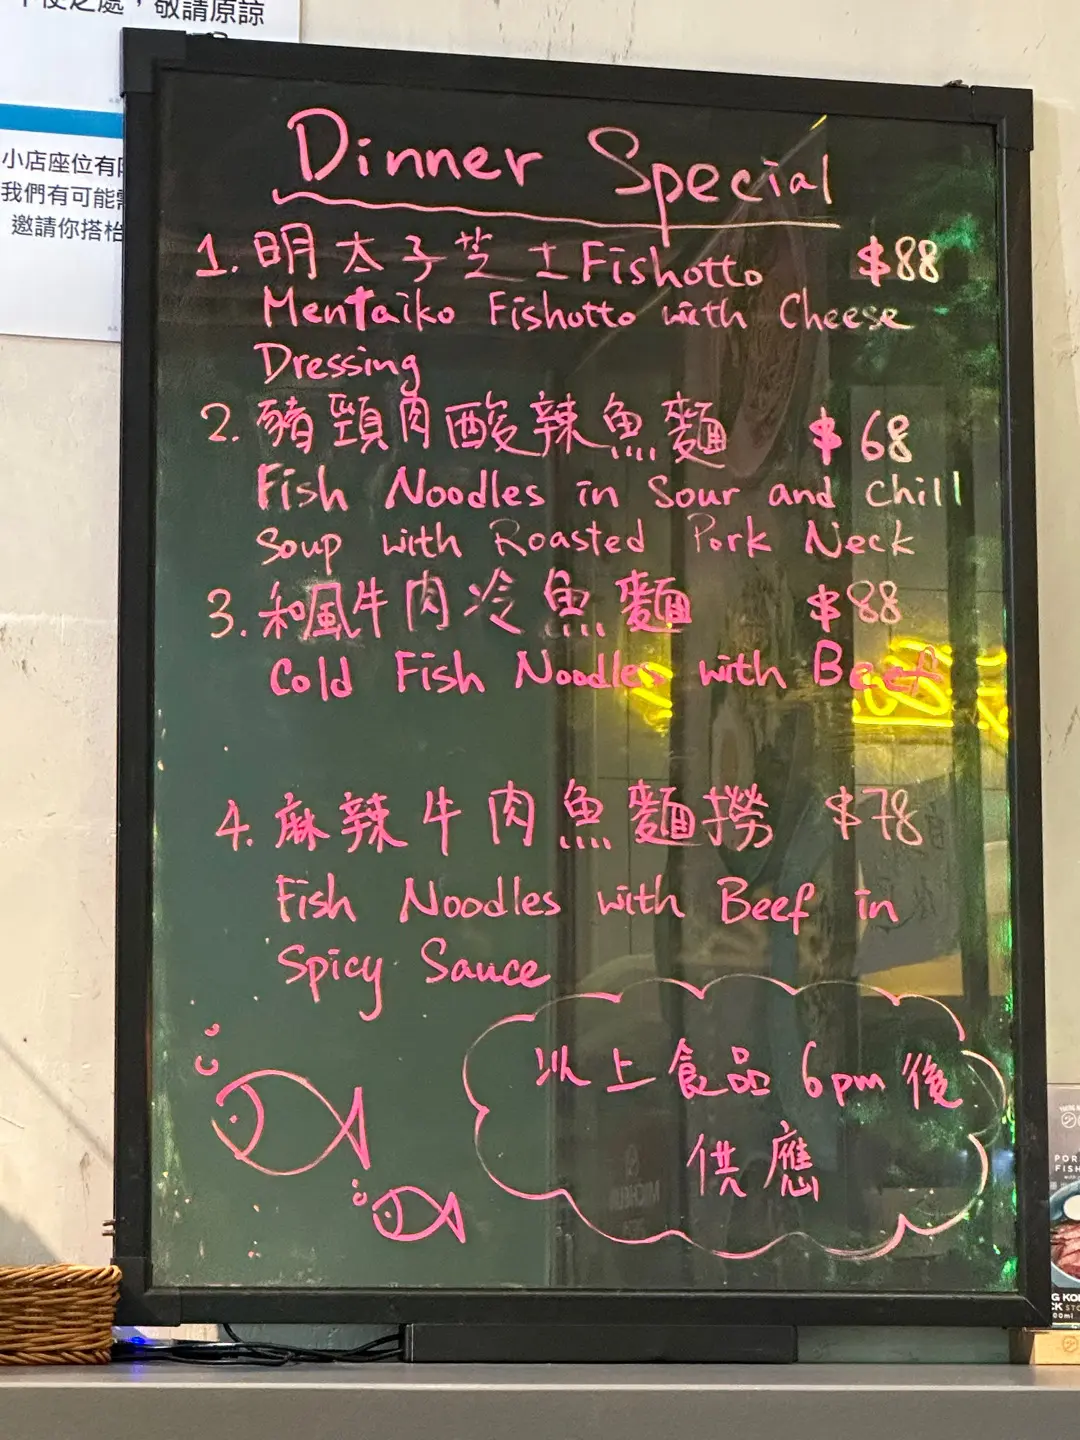 使之處，敬請原諒
小店座位有
我們有可能
邀請你搭枱
Dinner Special
1. 明太子芝士Fishotto $88
Mentaiko Fishotto with Cheese
Dressing
2. 豬頸肉酸辣魚麵 $68
Fish Noodles in Sour and Chill
Soup with Roasted Pork Neck
3. 和風牛肉冷魚麵 $88
Cold Fish Noodles with Beef
4. 麻辣牛肉魚麵撈 $78
Fish Noodles with Beef in
Spicy Sauce
以上食品 6pm 後
供應